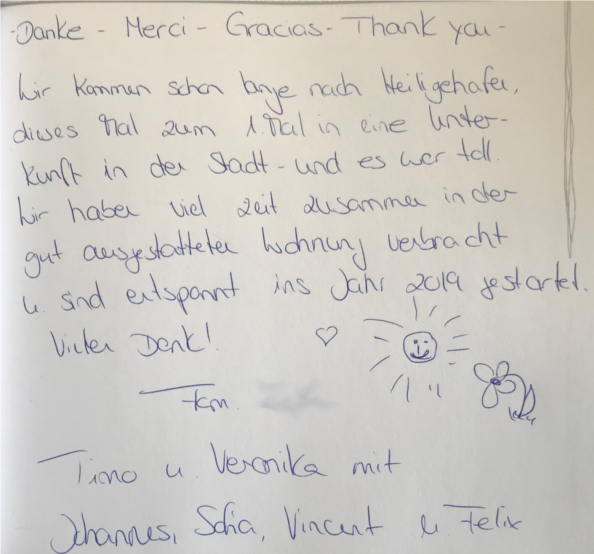 -Danke - Merci - Gracias - Thank you -
Wir kommen schon lange nach Heiligehafen,
dieses Mal zum 1. Mal in eine Unter-
kunft in der Stadt - und es war toll.
Wir haben viel Zeit zusammen in der
gut ausgestatteten Wohnung verbracht
u. sind entspannt ins Jahr 2019 gestartet.
Vielen Dank!
Fam.
Timo u. Veronika mit
Johannes, Sofia, Vincent u. Felix